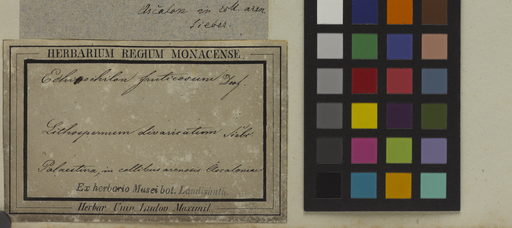 Ascalon in coll. aren.
Sieber.
HERBARIUM REGIUM MONACENSE.
Echiochilon fruticosum Desf.
Lithospermum divaricatum Sieb.
Palaestina, in collibus arenosis Ascaloniae
Ex herbario Musei bot. Landishuth.
Herbar. Univ. Ludov. Maximil.